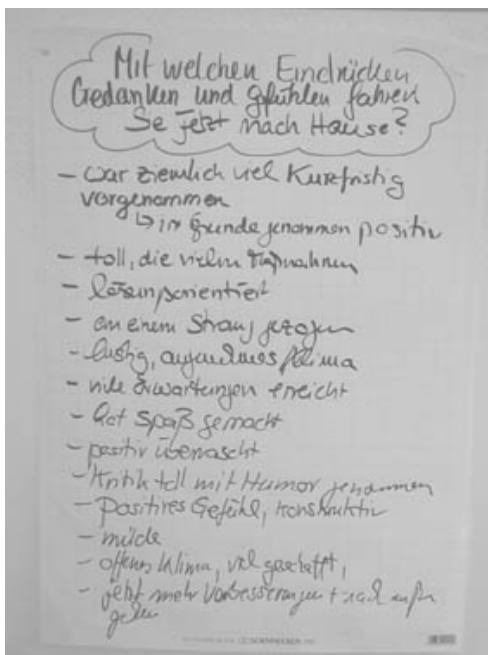 Mit welchen Eindrücken
Gedanken und Gefühlen fahren
Sie jetzt nach Hause?
- war ziemlich viel Kurzfristig
vorgenommen
↳ im Grunde genommen positiv
- toll, die vielen Maßnahmen
- lösungsorientiert
- an einem Strang gezogen
- lustig, angenehmes Klima
- viele Erwartungen erreicht
- hat Spaß gemacht
- positiv überrascht
- Kritik toll mit Humor genommen
- Positives Gefühl, konstruktiv
- müde
- offenes Klima, viel geschafft,
- jetzt mehr Verbesserungen + nach außen
gehen